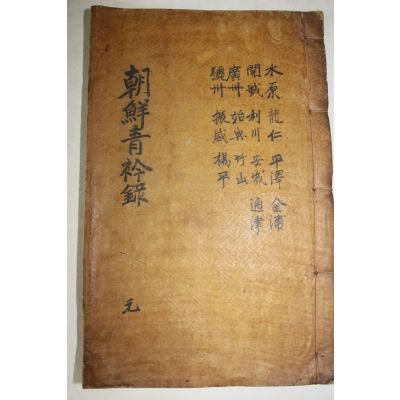 水原 龍仁 平澤 金浦
開城 利川 安城 通津
廣州 始興 竹山
驪州 振威 楊平
朝鮮青衿錄
元